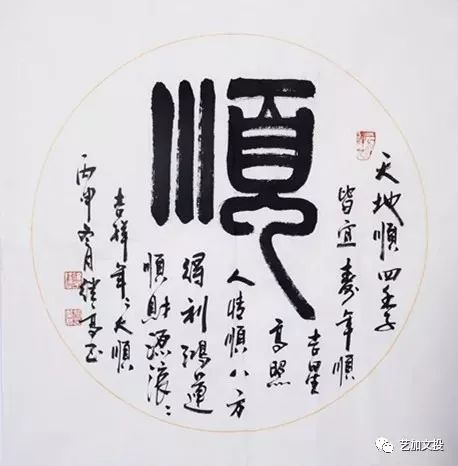 順
天地順四季
皆宜寿年順
吉星
高照
人情順八方
得利鴻運
順財源滚:
吉祥年:大順
丙申冬月
艺加文投